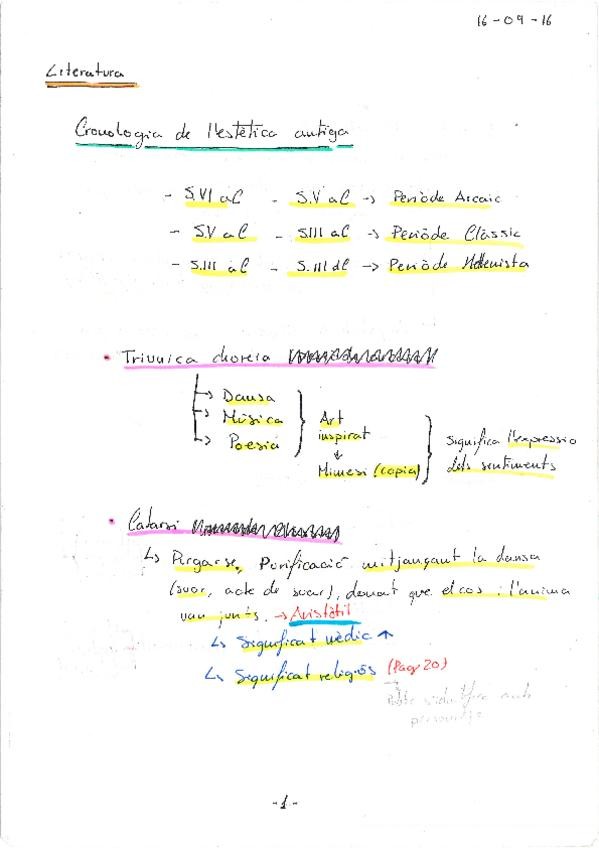 16-09-16
Literatura
Cronologia de l'estètica antiga
- S.VI aC - S.V aC -> Període Arcaic
- S.V aC - S.III aC -> Període Clàssic
- S.III aC - S.III dC -> Període Hel·lenista
• Triunica choreia
Dansa
Música
Poesia
Art
inspirat
↓
Mimesi (copia)
significa l'expressio
dels sentiments
• Catarsi
↳ Purgarse, Purificació mitjançant la dansa
(suor, acte de suar), donat que el cos i l'anima
van junts. -> Aristòtil
↳ Significat mèdic ↑
↳ Significat religiós (Pàg 20)
amb
-1-